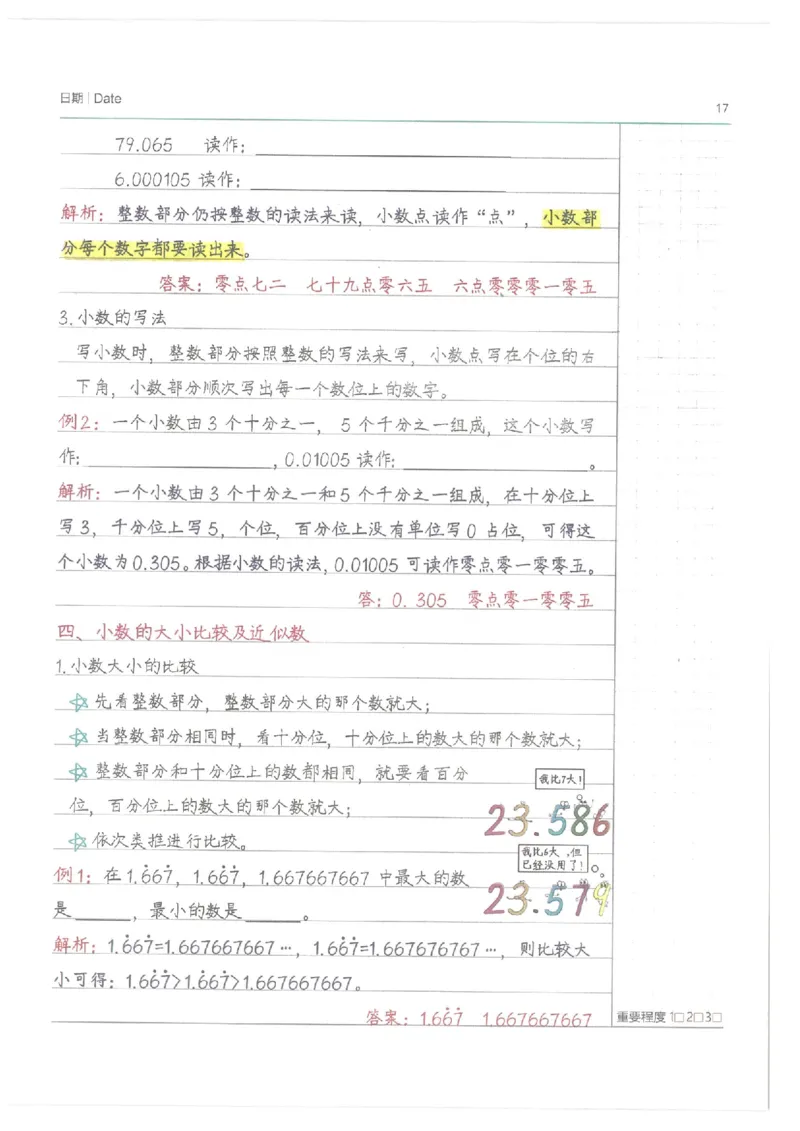 日期 Date
17
79.065 读作：
6.000105 读作：
解析：整数部分仍按整数的读法来读，小数点读作“点”，小数部
分每个数字都要读出来。
答案：零点七二 七十九点零六五 六点零零零一零五
3.小数的写法
写小数时，整数部分按照整数的写法来写，小数点写在个位的右
下角，小数部分顺次写出每一个数位上的数字。
例2：一个小数由3个十分之一，5个千分之一组成，这个小数写
作：，0.01005读作：。
解析：一个小数由3个十分之一和5个千分之一组成，在十分位上
写3，千分位上写5，个位，百分位上没有单位写0占位，可得这
个小数为0.305。根据小数的读法，0.01005可读作零点零一零零五。
答：0.305 零点零一零零五
四、小数的大小比较及近似数
1.小数大小的比较
☆先看整数部分，整数部分大的那个数就大；
☆当整数部分相同时，看十分位，十分位上的数大的那个数就大；
☆整数部分和十分位上的数都相同，就要看百分
位，百分位上的数大的那个数就大；
☆依次类推进行比较。
我比7大！
23.586
我比6大，但
已经没用了！
23.579
例1：在1.6̇67̇，1.66̇7̇，1.667667667中最大的数
是______，最小的数是______。
解析：1.6̇67̇=1.667667667…，1.66̇7̇=1.667676767…，则比较大
小可得：1.66̇7̇>1.6̇67̇>1.667667667。
答案：1.66̇7̇ 1.667667667
重要程度 1□2□3□